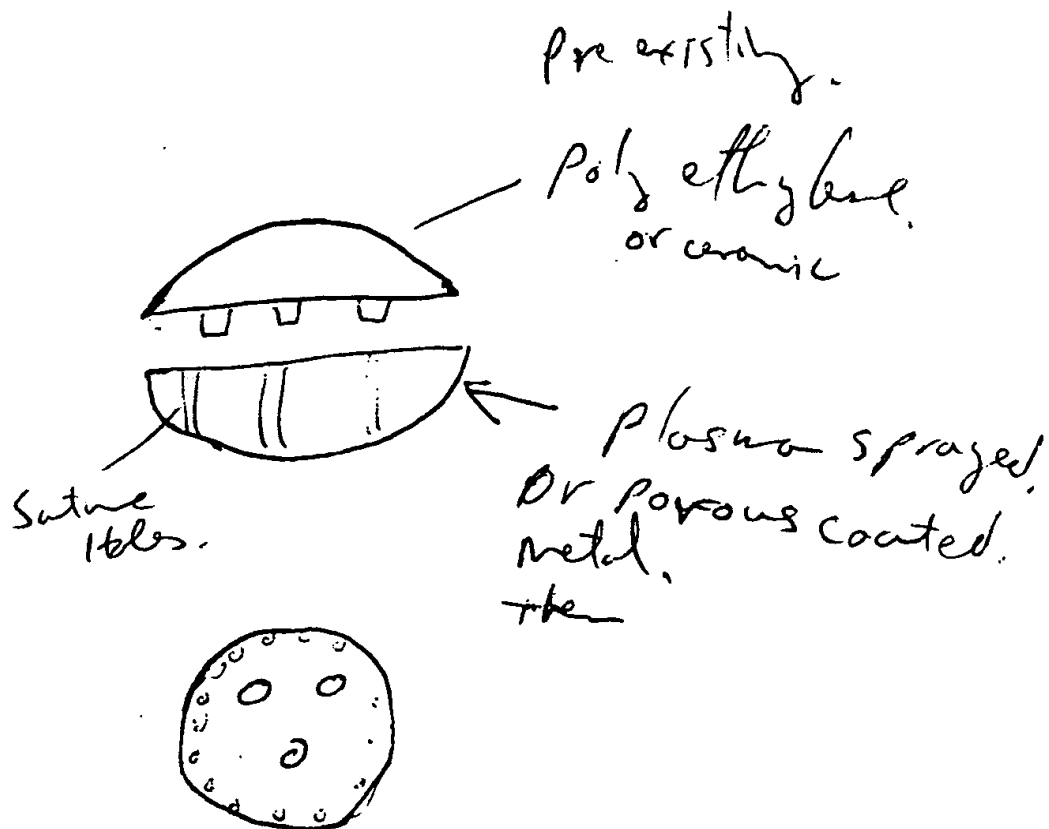 Pre existing.
Poly ethylene.
or ceramic
Plasma sprayed.
Or Porous coated.
metal.
Suture
Holes.